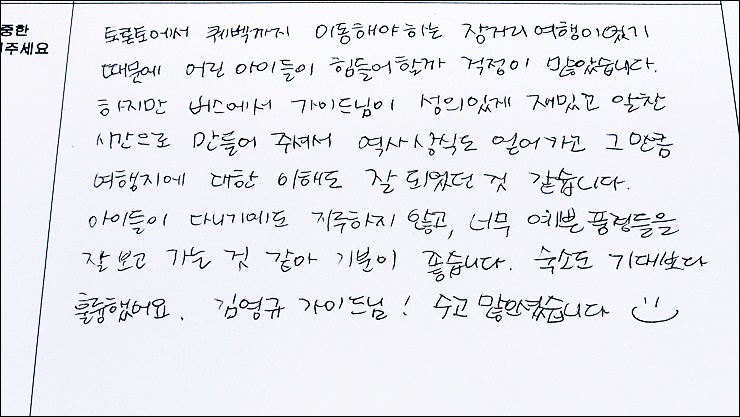 중한
주세요
토론토에서 퀘벡까지 이동해야하는 장거리여행이었기
때문에 어린 아이들이 힘들어할까 걱정이 많았습니다.
하지만 버스에서 가이드님이 성의있게 재밌고 알찬
시간으로 만들어 주셔서 역사상식도 얻어가고 그만큼
여행지에 대한 이해도 잘 되었던 것 같습니다.
아이들이 다니기에도 지루하지 않고, 너무 예쁜 풍경들을
잘 보고 가는 것 같아 기분이 좋습니다. 숙소도 기대보다
훌륭했어요. 김영규 가이드님! 수고 많으셨습니다